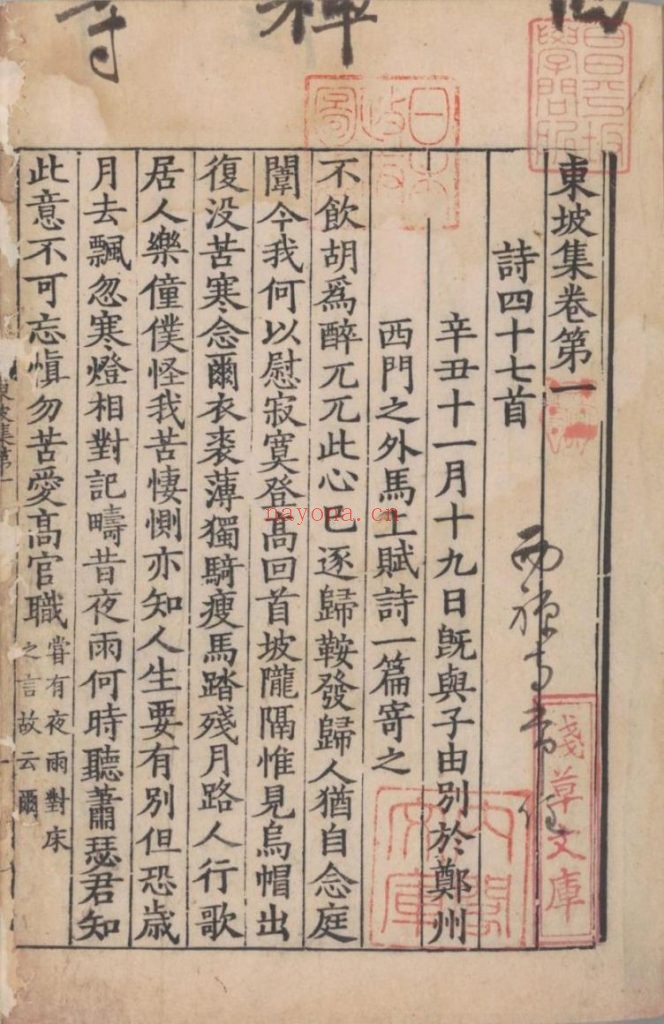 禪寺
東坡集卷第一
詩四十七首
辛丑十一月十九日旣與子由別於鄭州
西門之外馬上賦詩一篇寄之
不飲胡爲醉兀兀此心已逐歸鞍發歸人猶自念庭
闈今我何以慰寂寞登髙回首坡隴隔惟見烏帽出
復没苦寒念爾衣裘薄獨騎瘦馬踏殘月路人行歌
居人樂僮僕怪我苦悽惻亦知人生要有別但恐歳
月去飄忽寒燈相對記疇昔夜雨何時聽蕭瑟君知
此意不可忘慎勿苦愛髙官職
嘗有夜雨對床
之言故云爾
東坡集第一
淺草文庫
日本政府圖書
內閣文庫
昌平坂學問所
nayona.cn